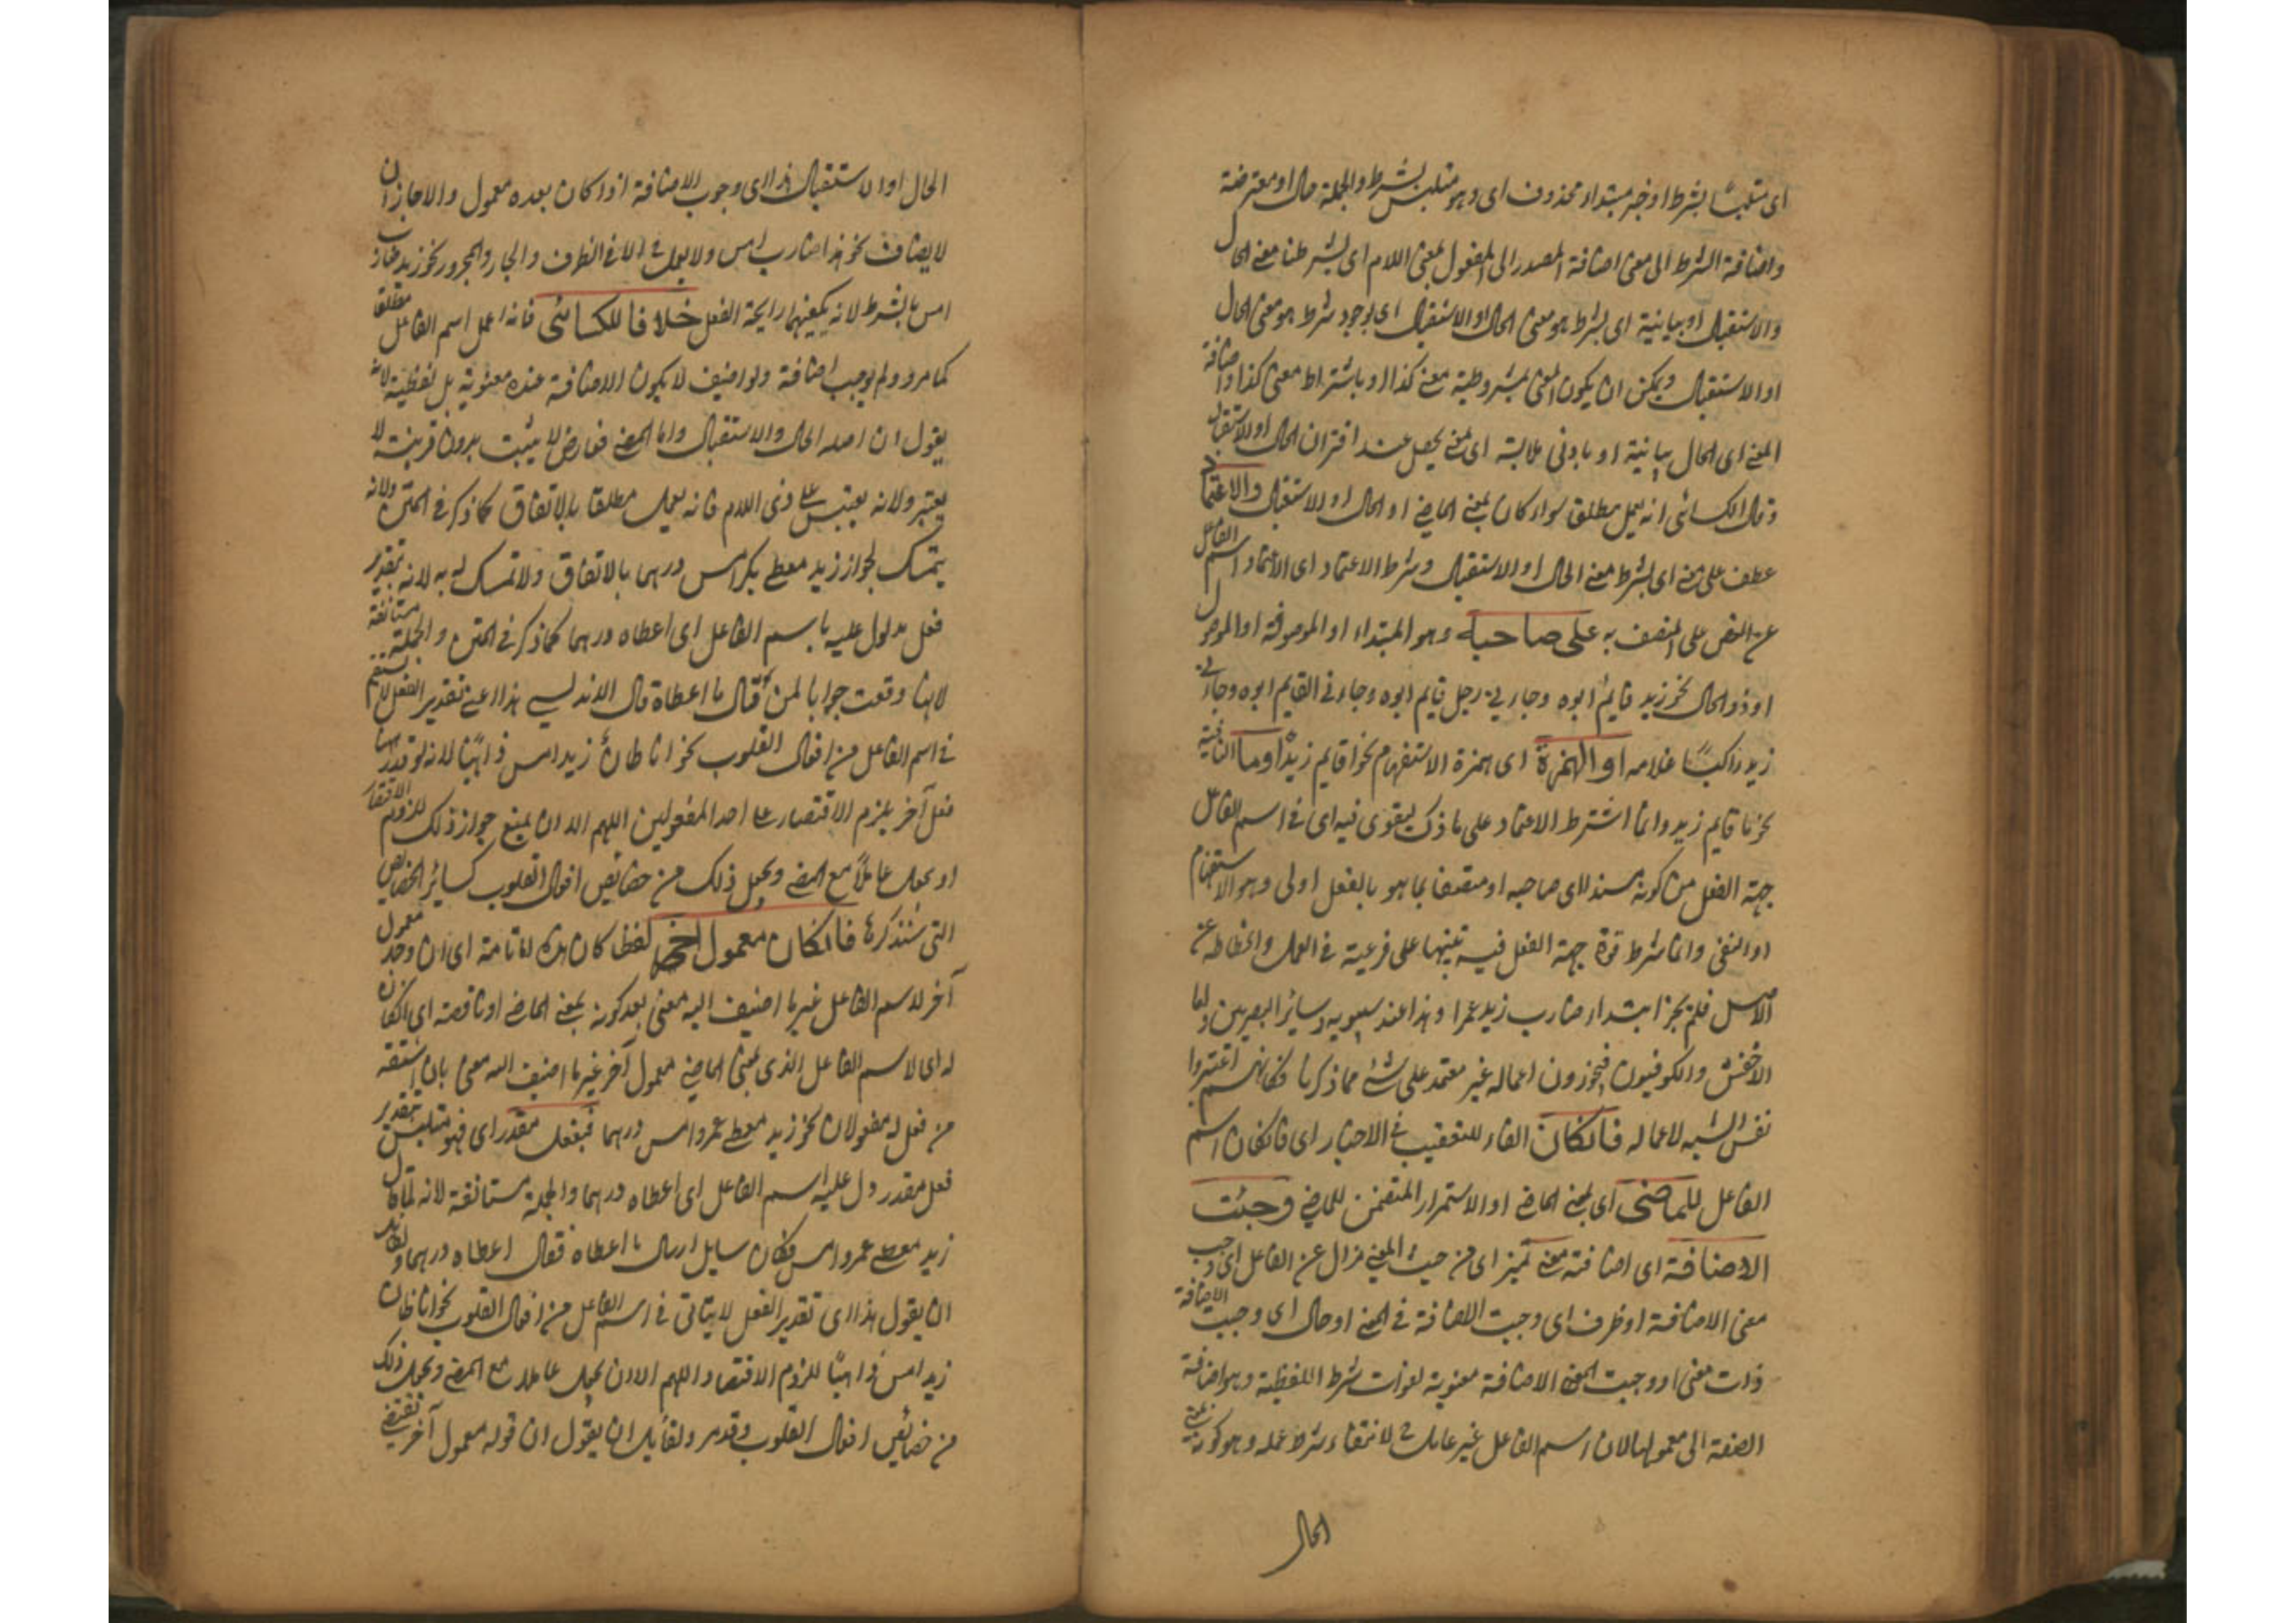 اى متلبسًا بشرط او خبر مبتداء محذوف اى وهو متلبس بشرط والجملة حال او معترضة
واضافة الشرط الى معنى اضافة المصدر الى المفعول بمعنى اللام اى بشرطنا معنى الحال
والاستقبال او بيانية اى بشرط هو معنى الحال او الاستقبال اى بوجود شرط هو معنى الحال
او الاستقبال ويمكن ان يكون المعنى بمشروطية معنى كذا او باشتراط معنى كذا واضافة
المعنى اى الحال بيانية او بادنى ملابسة اى بمعنى يحصل عند اقتران الحال او الاستقبال
وقال الكسائى انه يعمل مطلقا سواء كان بمعنى الماضى او الحال او الاستقبال والاعتماد
عطف على معنى اى بشرط معنى الحال او الاستقبال وشرط الاعتماد اى الاعتماد اسم الفاعل
على المتصف به على صاحبه وهو المبتداء او الموصوف او الموصول
او ذو الحال نحو زيد قايم ابوه وجاءنى رجل قايم ابوه وجاءنى القايم ابوه وجاءنى
زيد راكبًا غلامه او الهمزة اى همزة الاستفهام نحو اقايم زيد او ما النافية
نحو ما قايم زيد وانما اشترط الاعتماد على ما ذكر ليقوى فيه اى فى اسم الفاعل
جهة الفعل من كونه مسندا الى صاحبه او متصفا بما هو بالفعل اولى وهو الاستفهام
او النفى وانما شرط قوة جهة الفعل فيه تنبيها على فرعيته فى العمل وانحطاطه عن
الاصل فلم يجز ابتداء ضارب زيد عمرا وهذا عند سيبويه وساير البصريين واما
الاخفش والكوفيون فيجوزون اعماله غير معتمد على شئ مما ذكرنا فكانهم اعتبروا
نفس الشبه لاعماله فان كان الفاء للتعقيب فى الاخبار اى فان كان اسم
الفاعل للماضى اى بمعنى الماضى او الاستمرار المتضمن للماضى وجبت
الاضافة اى اضافته معنى تميز اى من حيث المعنى مزال عن الفاعل اى وجب
معنى الاضافة او ظرف اى وجبت الاضافة فى المعنى او حال اى وجبت الاضافة
ذات معنى او وجبت الاضافة معنوية لفوات شرط اللفظية وهو اضافة
الصفة الى معمولها لان اسم الفاعل غير عامل لانتفاء شرط عمله وهو كونه بمعنى
الحال
الحال او الاستقبال هذا اى وجوب الاضافة اذا كان بعده معمول والا جاز ان
لا يضاف نحو هذا ضارب امس ولا يعمل الا فى الظرف والجار والمجرور نحو زيد ضارب
امس بالشرط لانه يكفيهما رايحة الفعل خلافا للكسائى فانه اعمل اسم الفاعل مطلقا
كما مر ولم يوجب اضافة ولو اضيف لا يكون الاضافة عنده معنوية بل لفظية لانه
يقول ان اصله الحال والاستقبال واما المضى فعارض لا يثبت بدون قرينة لا
يعتبر ولانه على ذى اللام فانه يعمل مطلقا بالاتفاق كما ذكر فى المتن ولانه
يتمسك بجواز زيد معطى بكر امس درهما بالاتفاق ولا تمسك له به لانه بتقدير
فعل مدلول عليه باسم الفاعل اى اعطاه درهما كما ذكر فى المتن والجملة مستانفة
لانها وقعت جوابا لمن قال ما اعطاه قال الاندلسى هذا اعنى تقدير الفعل لا يستقيم
فى اسم الفاعل من افعال القلوب نحو انا ظان زيد امس ذاهبًا لانه لو قدر ههنا
فعل آخر يلزم الاقتصار على احد المفعولين اللهم الا ان يمنع جواز ذلك للزوم الاقتصار
او يجعل عاملا مع المضى ويجعل ذلك من خصائص افعال القلوب كسائر الخصائص
التى سنذكرها فان كان معمول آخر لفظ كان هذا اما تامة اى ان وجد معمول
آخر لاسم الفاعل غير ما اضيف اليه معنى بعد كونه بمعنى الماضى او ناقصة اى ان كان
له اى لاسم الفاعل الذى بمعنى الماضى معمول آخر غير ما اضيف اليه معنى بان اشتقه
من فعل له مفعولان نحو زيد معطى عمرو امس درهما فبفعل مقدر اى فهو متلبس بتقدير
فعل مقدر دل عليه اسم الفاعل اى اعطاه درهما والجملة مستانفة لانه لما قال
زيد معطى عمرو امس فكان سايل سال ما اعطاه فقال اعطاه درهما ولقايل
ان يقول هذا اى تقدير الفعل لا يتاتى فى اسم الفاعل من افعال القلوب نحو انا ظان
زيد امس ذاهبًا للزوم الاقتصار اللهم الا ان يجعل عاملا مع المضى ويجعل ذلك
من خصائص افعال القلوب وقد مر ولقايل ان يقول ان قوله معمول آخر يقتضى